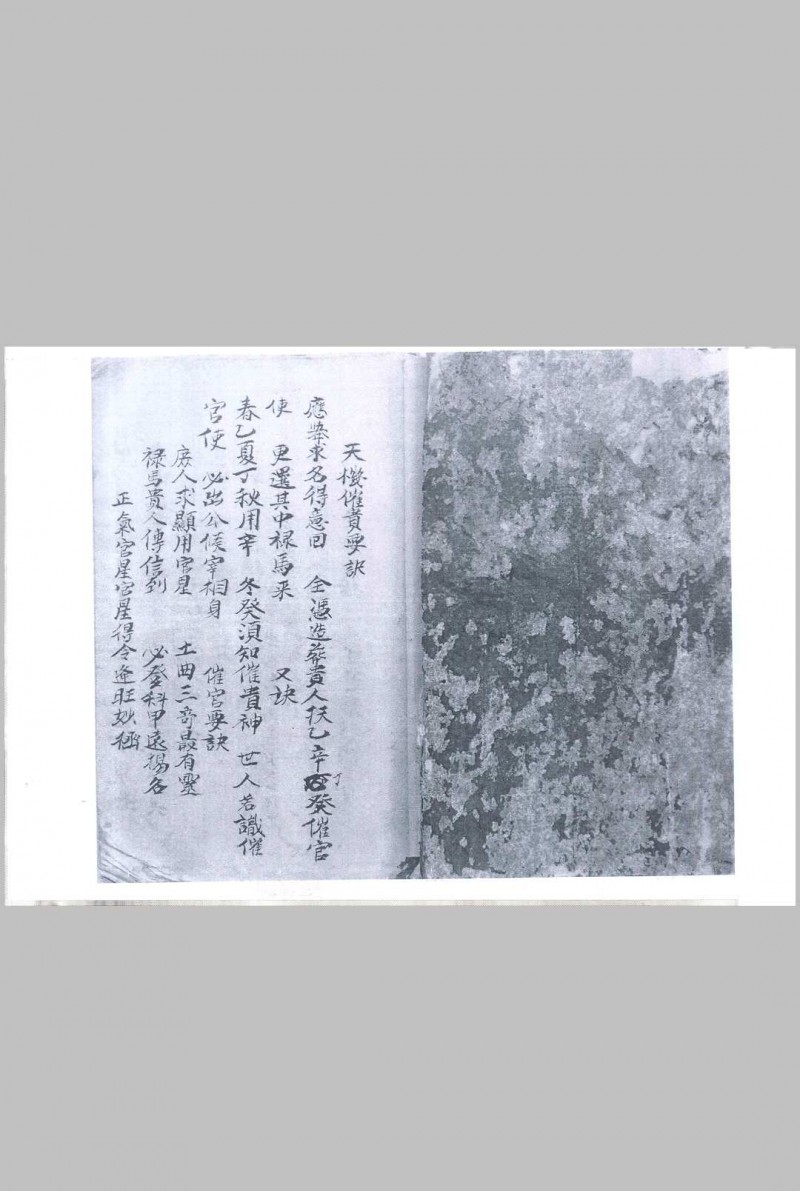 天機催貴要訣
應舉求名得意回　全憑造葬貴人扶乙辛丁癸催官
使　更還其中禄馬来　又訣
春乙夏丁秋用辛　冬癸須知催貴神　世人若識催
官使　必出公候宰相身　催官要訣
庶人求顯用官星　土曲三奇最有灵
禄馬貴人傳信到　必登科甲遠揚名
正氣官星官星得令逢旺妙極